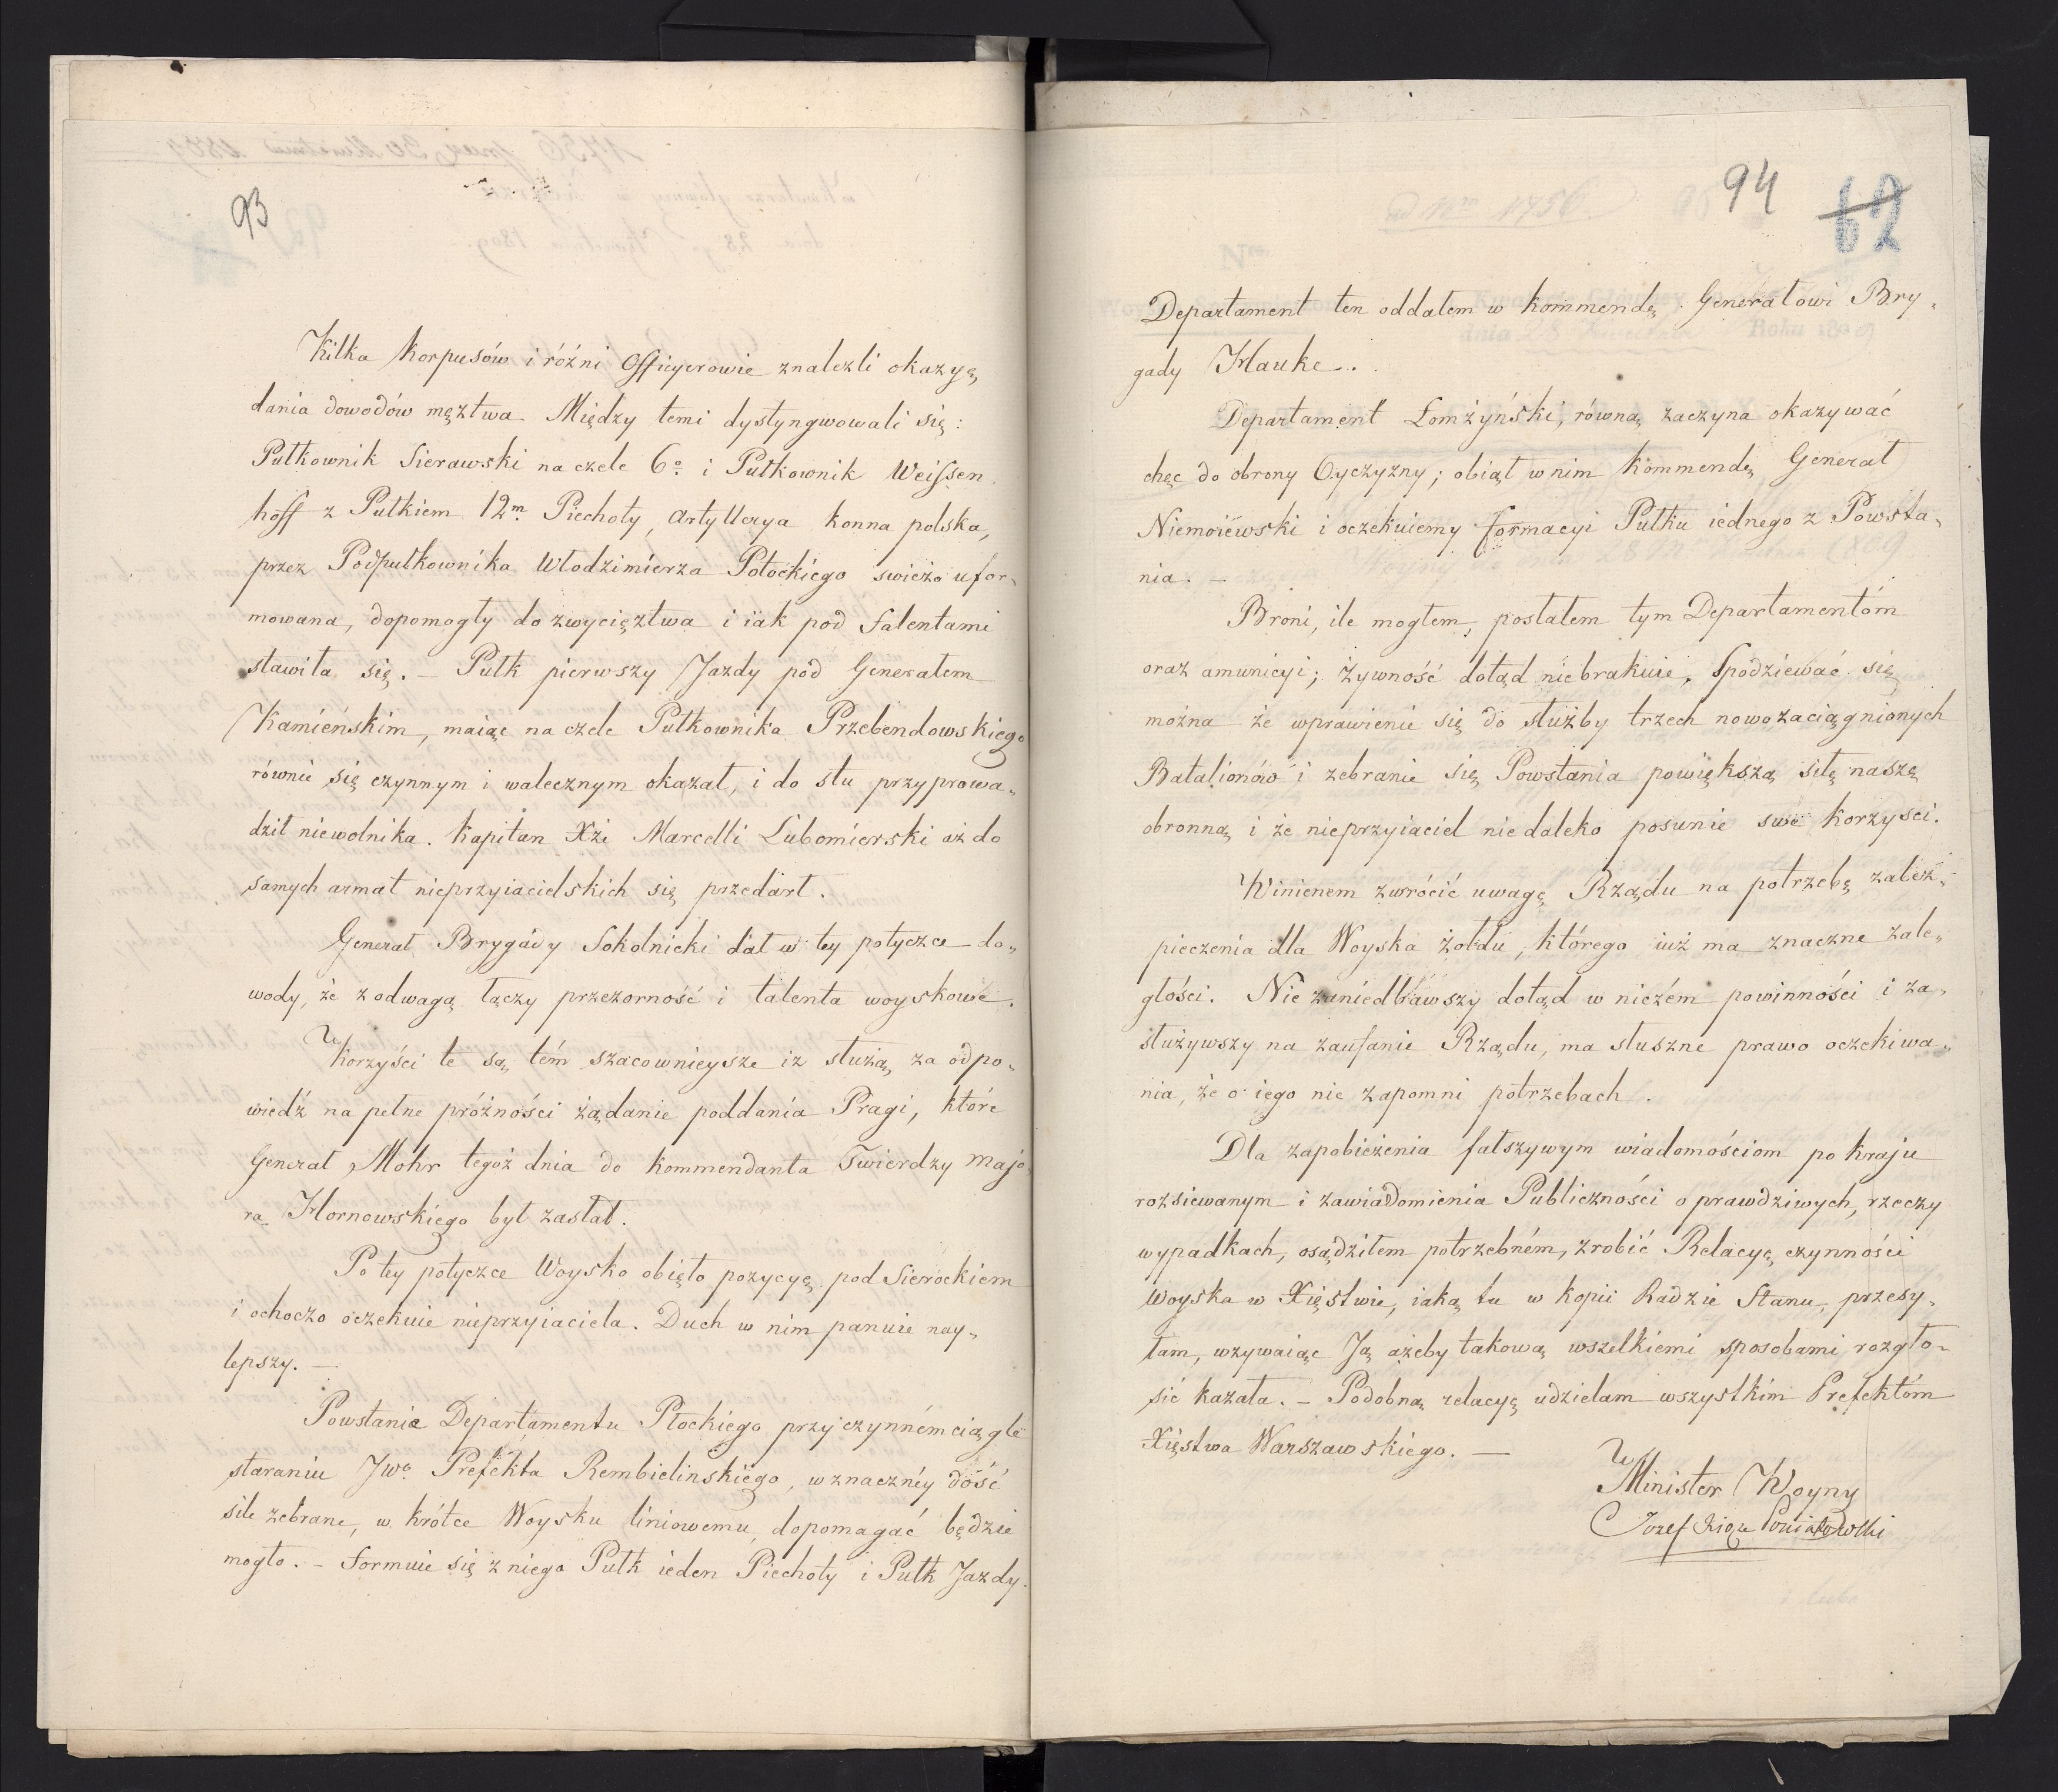 93
Kilka Korpusów i różni Officyerowie znalezli okazyę
dania dowodów męztwa. Między temi dystyngwowali się:
Pułkownik Sierawski na czele 6º i Pułkownik Weissen
hoff z Pułkiem 12m Piechoty, Artyllerya konna polska,
przez Podpułkownika Włodzimierza Potockiego swieżo ufor„
mowana, dopomogły do zwycięztwa i iak pod talentami
stawiła się. – Pułk pierwszy Jazdy pod Generałem
Kamieńskim, maiąc na czele Pułkownika Przebendowskiego
równie się czynnym i walecznym okazał, i do stu przyprowa„
dził niewolnika. Kapitan Xżę Marcelli Lubomierski aż do
samych armat nieprzyiacielskich się przedarł.
Generał Brygady Sokolnicki dał w tey potyczce do„
wody, że z odwagą łączy przezorność i talenta woyskowe.
Korzyści te są tém szacownieysze iż służą za odpo„
wiedź na pełne próżności żądanie poddania Pragi, które
Generał Mohr tegoż dnia do kommendanta Twierdzy majo
ra Hornowskiego był zasłał.
Po tey potyczce Woysko obięło pozycyę pod Sierockiem
i ochoczo oczekuie nieprzyiaciela. Duch w nim panuie nay„
lepszy. –
Powstanie Departamentu Płockiego przy czynném ciągle
staraniu JWo Prefekta Rembielinskiego, w znaczney dość
sile zebrane, w krótce Woysku liniowemu dopomagać będzie
mogło. – Formuie się z niego Pułk ieden Piechoty i Pułk Jazdy.
94
62
Departament ten oddałem w kommendę Generałowi Bry„
gady Hauke.
Departament Łomżyński, równą zaczyna okazywać
chęć do obrony Oyczyzny; obiął w nim Kommendę Generał
Niemoiewski i oczekuiemy formacyi Pułku iednego z Powsta„
nia. –
Broni, ile mogłem, posłałem tym Departamentóm
oraz amunicyi; żywność dotąd niebrakuie. Spodziewać się
można że wprawienie się do służby trzech nowozaciągnionych
Batalionów i zebranie się Powstania powiększą siłę naszę
obronną i że nieprzyiaciel niedaleko posunie swe korzyści.
Winienem zwrócić uwagę Rządu na potrzebę zabez„
pieczenia dla Woyska żołdu, którego iuż ma znaczne zale„
głości. Nie zaniedbawszy dotąd w niczém powinności i za„
służywszy na zaufanie Rządu, ma słuszne prawo oczekiwa„
nia, że o iego nie zapomni potrzebach.
Dla zapobieżenia fałszywym wiadomościom po kraju
rozsiewanym i zawiadomienia Publiczności o prawdziwych, rzeczy
wypadkach, osądziłem potrzebném, zrobić Relacyę czynności
Woyska w Xięstwie, iaką tu w kopii Radzie Stanu, przesy„
łam, wzywaiąc Ją ażeby takową wszelkiemi sposobami rozgło„
sić kazała. – Podobną relacyę udzielam wszystkim Prefektóm
Xięstwa Warszawskiego. –
Minister Woyny
Jozef Xiąże Poniatowski